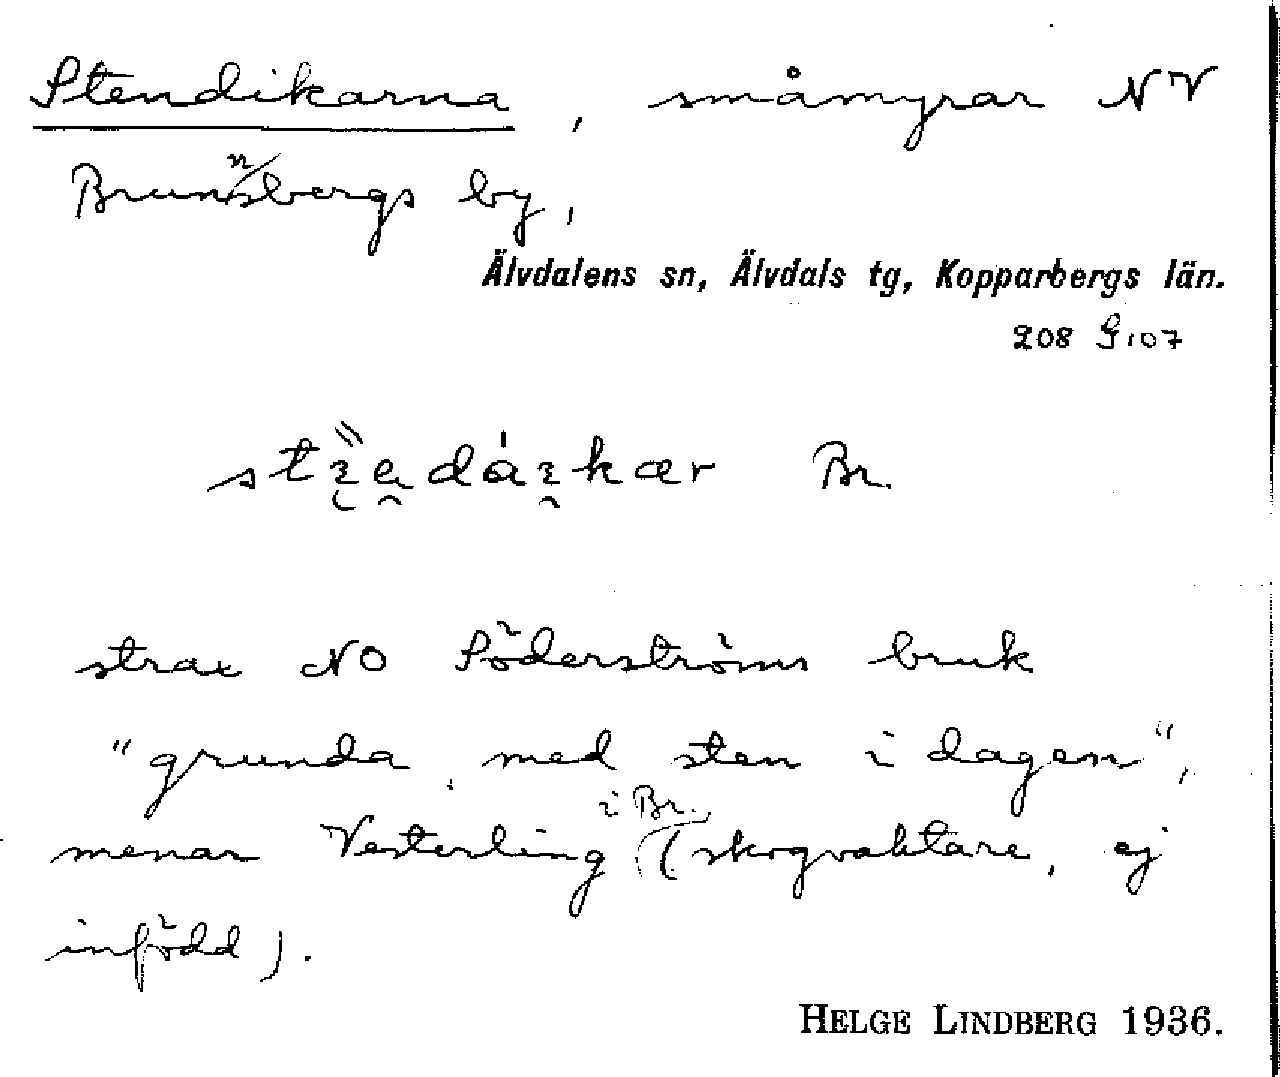 Stendikarna, småmyrar NV
Brunnsbergs by,
Älvdalens sn, Älvdals tg, Kopparbergs län.
208 G:07
Br.
strax NO Söderströms bruk
"grunda, med sten i dagen",
menar Vesterling i Br. (skogvaktare, ej
infödd).
HELGE LINDBERG 1936.